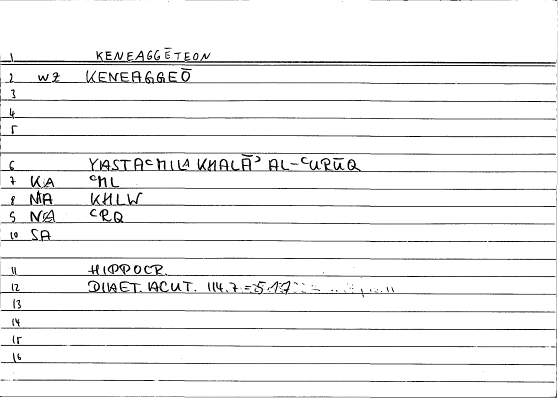 1 KENEAGGĒTEON
2 WZ KENEAGGEŌ
3
4
5
6 YIASTAᶜMILA KHALĀʾ AL-ᶜURŪQ
7 KA ᶜML
8 MA KHLW
9 NA ᶜRQ
10 SA
11 HIPPOCR.
12 DIAET. ACUT. 114.7 =
13
14
15
16